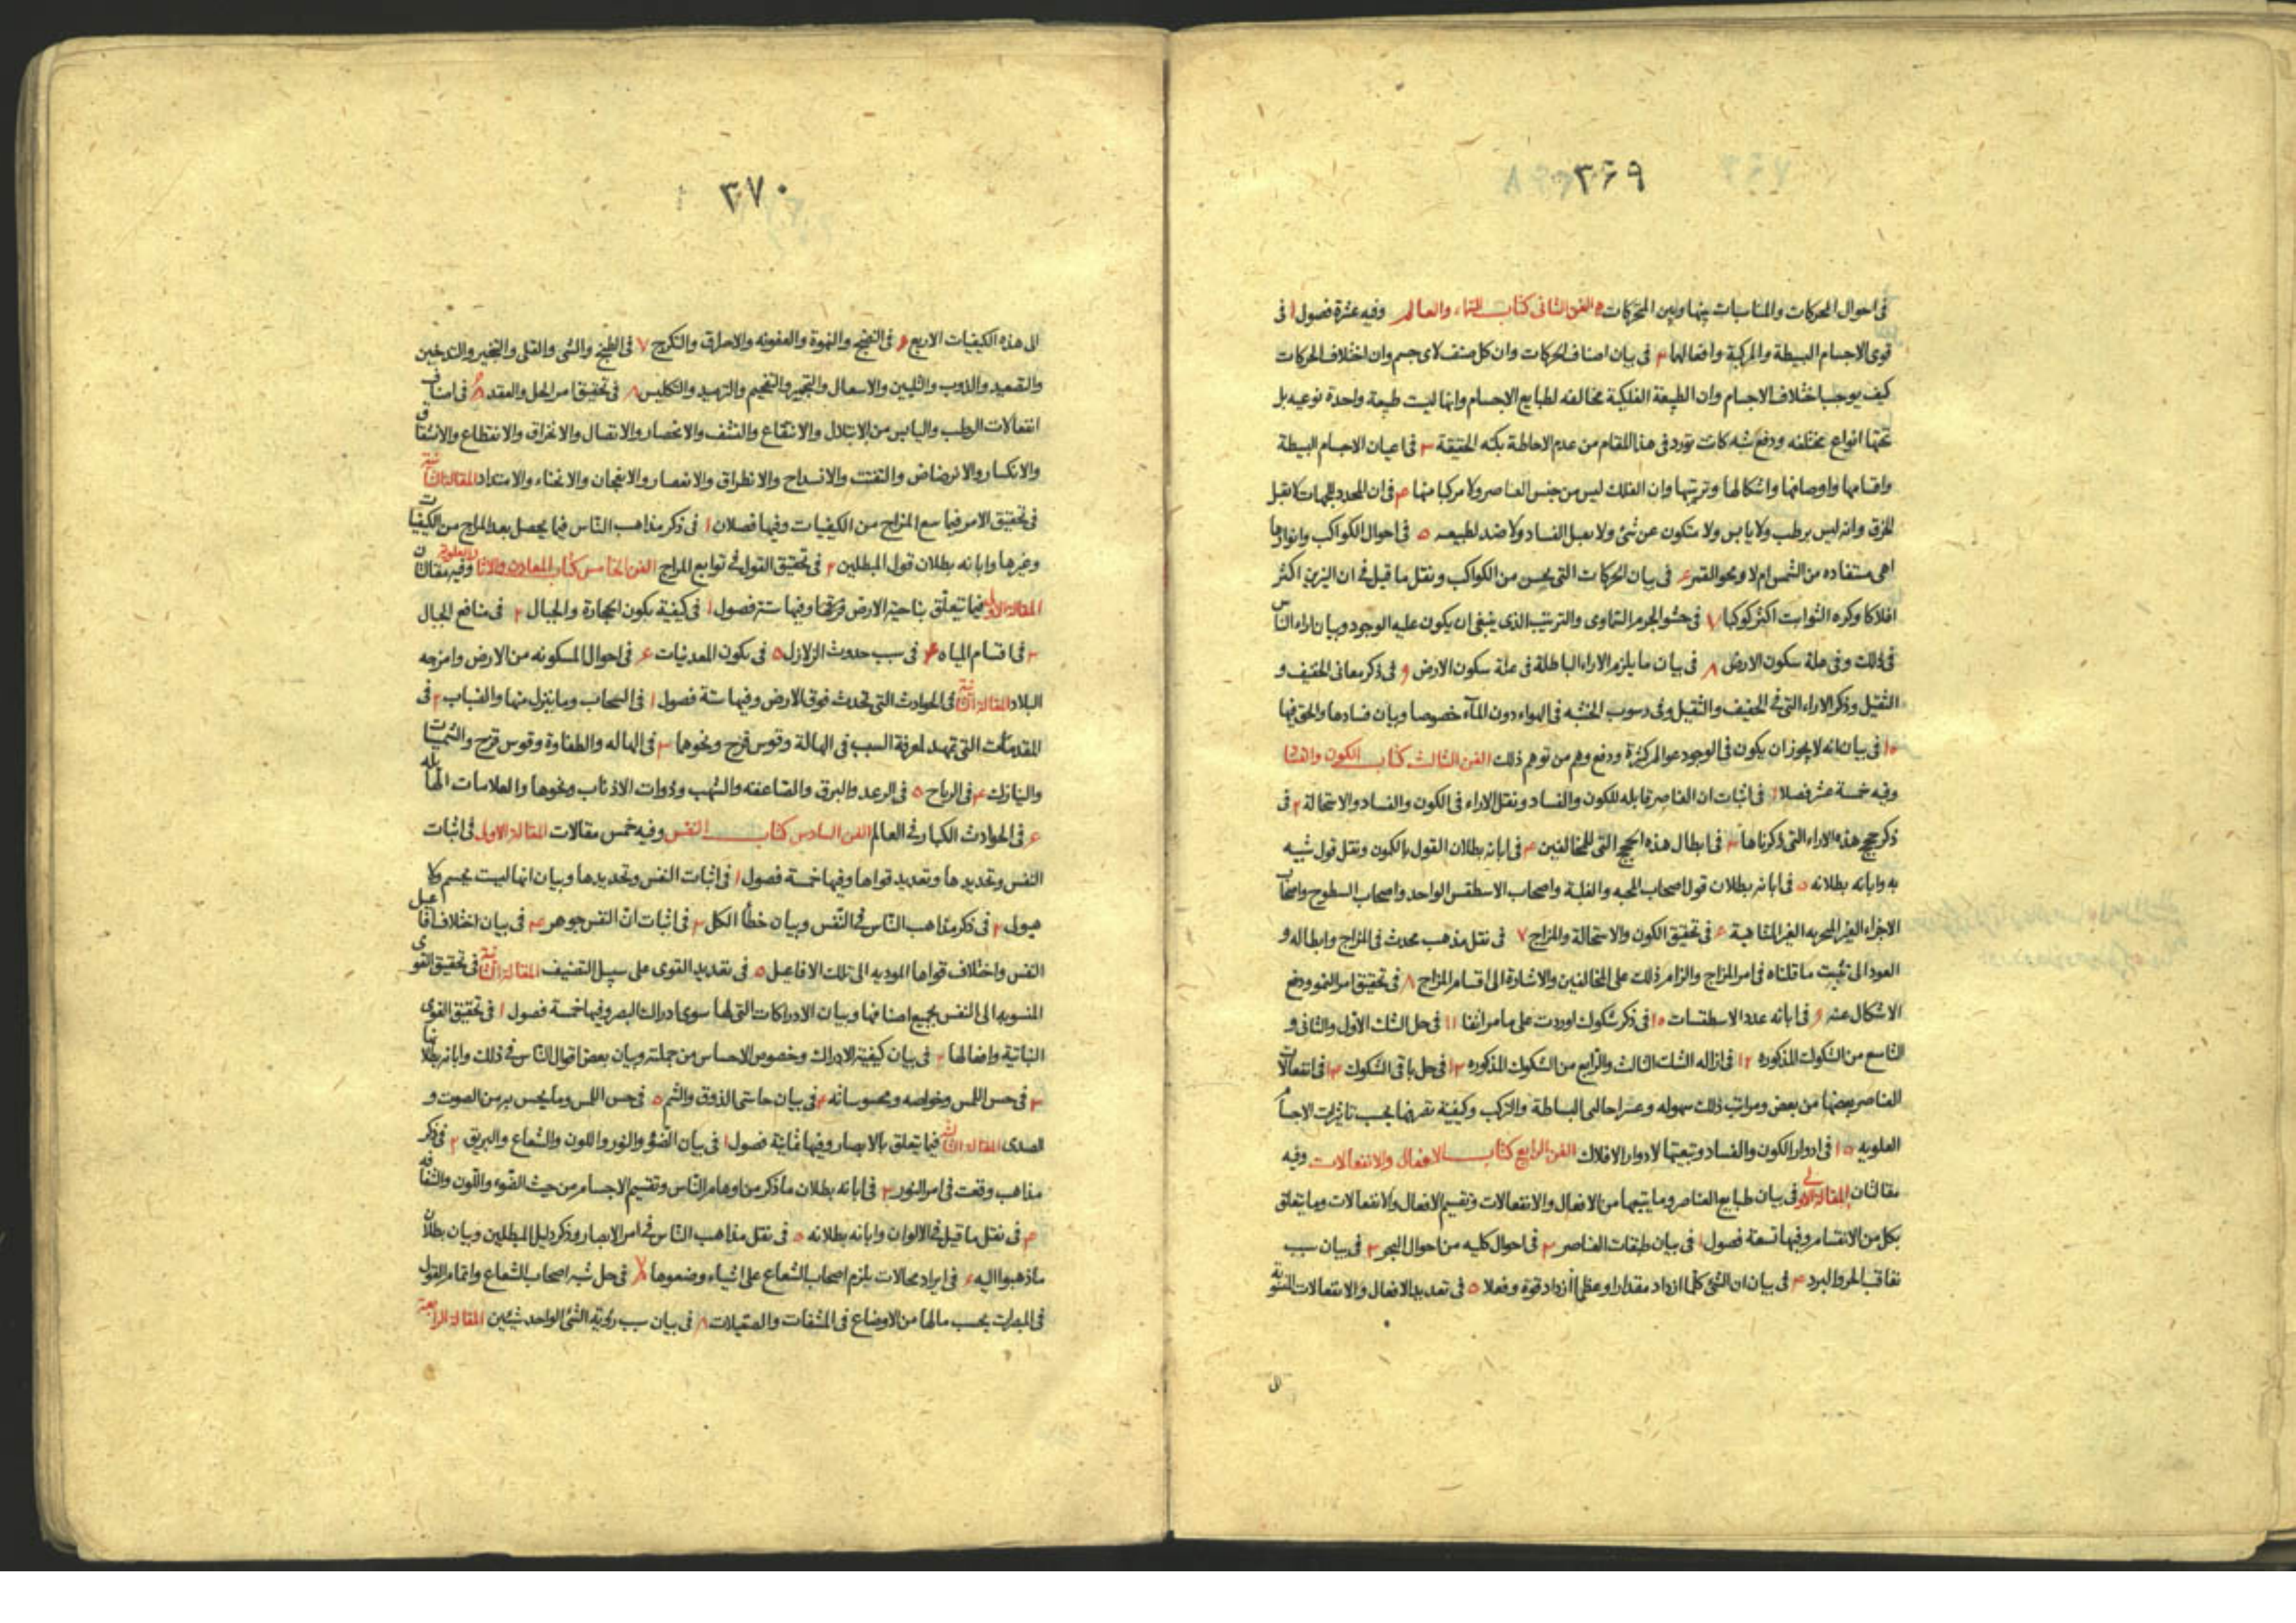 ٣٦٩
فى احوال المحركات والمناسبات بينها وبين المتحركات ٥ الفن الثانى كتاب السماء والعالم وفيه عشرة فصول ١ فى
قوى الاجسام البسيطة والمركبة وافعالها ٢ فى بيان اصناف الحركات وان كل صنف لاى جسم وان اختلاف الحركات
كيف يوجب اختلاف الاجسام وان الطبيعة الفلكية مخالفه لطبايع الاجسام وانها ليست طبيعة واحدة نوعيه بل
تحتها انواع مختلفه ودفع شبه كانت تورد فى هذا المقام من عدم الاحاطة بكنه الحقيقة ٣ فى اعيان الاجسام البسيطة
واقسامها واوصافها واشكالها وترتيبها وان الفلك ليس من جنس العناصر ولا مركبا منها ٤ فى ان المحدد للجهات لا يقبل
الخرق وانه ليس برطب ولا يابس ولا متكون عن شئ ولا يقبل الفساد ولا ضد لطبيعه ٥ فى احوال الكواكب وانوارها
اهى مستفاده من الشمس ام لا ومحو القمر ٦ فى بيان الحركات التى يحس من الكواكب ونقل ما قيل فى ان اليزين اكثر
افلاكا وكره الثوابت اكثر كوكبا ٧ فى حشو الجرم السماوى والترتيب الذى ينبغى ان يكون عليه الوجود وبيان اراء الناس
فى ذلك وفى علة سكون الارض ٨ فى بيان ما يلزم الاراء الباطلة فى علة سكون الارض ٩ فى ذكر معانى الخفيف و
الثقيل وذكر الاراء التى فى الخفيف والثقيل وفى رسوب الخشبه فى الهواء دون المآء خصوصا وبيان فسادها والحق فيها
١٠ فى بيان انه لا يجوز ان يكون فى الوجود عوالم كثيرة ودفع وهم من توهم ذلك الفن الثالث كتاب الكون والفساد
وفيه خمسة عشر فصلا ١ فى اثبات ان العناصر قابله للكون والفساد ونقل الاراء فى الكون والفساد والاستحالة ٢ فى
ذكر حجج هذه الاراء التى ذكرناها ٣ فى ابطال هذه الحجج التى للمخالفين ٤ فى ابانة بطلان القول بالكون ونقل قول شبيه
به وابانه بطلانه ٥ فى ابانة بطلان قول اصحاب المحبه والغلبة واصحاب الاسطقس الواحد واصحاب السطوح واصحاب
الاجزاء الغير المتجزيه الغير المتناهية ٦ فى تحقيق الكون والاستحالة والمزاج ٧ فى نقل مذهب محدث فى المزاج وابطاله و
العود الى تثبيت ما قلناه فى امر المزاج والزام ذلك على المخالفين والاشارة الى اقسام المزاج ٨ فى تحقيق امر النمو ودفع
الاشكال عنه ٩ فى ابانه عدد الاسطقسات ١٠ فى ذكر شكوك اوردت على ما مر انفا ١١ فى حل الشك الاول والثانى و
التاسع من الشكوك المذكوره ١٢ فى ازاله الشك الثالث والرابع من الشكوك المذكوره ١٣ فى حل باقى الشكوك ١٤ فى انفعالات
العناصر بعضها من بعض ومراتب ذلك سهوله وعسرا حالتى البساطة والتركب وكيفية تغيرها بحسب تاثيرات الاجسام
العلويه ١٥ فى ادوار الكون والفساد وتبعيتها لادوار الافلاك الفن الرابع كتاب الافعال والانفعالات وفيه
مقالتان المقالة الاولى فى بيان طبايع العناصر وما يتبعها من الافعال والانفعالات وتقسيم الافعال والانفعالات وما يتعلق
بكل من الاقسام وفيها تسعة فصول ١ فى بيان طبقات العناصر ٢ فى احوال كليه من احوال البحر ٣ فى بيان سبب
تعاقب الحر والبرد ٤ فى بيان ان الشئ كلما ازداد مقدارا وعظما ازداد قوة وفعلا ٥ فى تعديد الافعال والانفعالات المنسوبة
الى
٣٧٠
الى هذه الكيفيات الاربع ٦ فى النضج والنهوة والعفونه والاحراق والتكرج ٧ فى الطبخ والشى والقلى والتبخير والتدخين
والتصعيد والذوب والتليين والاشعال والتجمير والتفحيم والترميد والتكليس ٨ فى تحقيق امر الحل والعقد ٩ فى اصناف
انفعالات الرطب واليابس من الابتلال والانتقاع والنشف والانحصار والاتصال والانخراق والانقطاع والانشقاق
والانكسار والانرضاض والتفتت والانشداخ والانطراق والانعصار والانعجان والانحناء والامتداد المقالة الثانية
فى تحقيق الامر فيما مع المزاج من الكيفيات وفيها فصلان ١ فى ذكر مذاهب الناس فيما يحصل بعد المزاج من الكيفيات
وغيرها وابانه بطلان قول المبطلين ٢ فى تحقيق القول فى توابع المزاج الفن الخامس كتاب المعادن والاثار العلوية وفيه مقالتان
المقالة الاولى فيما يتعلق بناحية الارض وتحتها وفيها ستة فصول ١ فى كيفية تكون الحجارة والجبال ٢ فى منافع الجبال
٣ فى اقسام المياه ٤ فى سبب حدوث الزلازل ٥ فى تكون المعدنيات ٦ فى احوال المسكونه من الارض وامزجه
البلاد المقالة الثانية فى الحوادث التى تحدث فوق الارض وفيها ستة فصول ١ فى السحاب وما ينزل منها والضباب ٢ فى
المقدمات التى تمهد لمعرفة السبب فى الهالة وقوس قزح ونحوها ٣ فى الهاله والطفاوة وقوس قزح والشميسات
والنيازك ٤ فى الرياح ٥ فى الرعد والبرق والصاعقه والشهب وذوات الاذناب ونحوها والعلامات الهائله
٦ فى الحوادث الكبار فى العالم الفن السادس كتاب النفس وفيه خمس مقالات المقالة الاولى فى اثبات
النفس وتحديدها وتعديد قواها وفيها خمسة فصول ١ فى اثبات النفس وتحديدها وبيان انها ليست بجسم ولا
هيولى ٢ فى ذكر مذاهب الناس فى النفس وبيان خطأ الكل ٣ فى اثبات ان النفس جوهر ٤ فى بيان اختلاف افاعيل
النفس واختلاف قواها الموديه الى تلك الافاعيل ٥ فى تعديد القوى على سبيل التصنيف المقالة الثانية فى تحقيق القوى
المنسوبه الى النفس بجميع اصنافها وبيان الادراكات التى لها سوى ادراك البصر وفيها خمسة فصول ١ فى تحقيق القوى
النباتية وافعالها ٢ فى بيان كيفية الادراك وخصوص الاحساس من جملته وبيان بعض اقوال الناس فى ذلك وابانة بطلانها
٣ فى حس اللمس وخواصه ومحسوساته ٤ فى بيان حاستى الذوق والشم ٥ فى حس اللمس وما يحس به من الصوت و
الصدى المقالة الثالثة فيما يتعلق بالابصار وفيها ثمانية فصول ١ فى بيان الضوء والنور واللون والشعاع والبريق ٢ فى ذكر
مذاهب وقعت فى امر النور ٣ فى ابانه بطلان ما ذكر من اوهام الناس وتقسيم الاجسام من حيث الضوء واللون والشفافه
٤ فى نقل ما قيل فى الالوان وابانه بطلانه ٥ فى نقل مذاهب الناس فى امر الابصار وذكر دليل المبطلين وبيان بطلان
ما ذهبوا اليه ٦ فى ايراد محالات يلزم اصحاب الشعاع على اشياء وضعوها ٧ فى حل شبه اصحاب الشعاع واتمام القول
فى المبصرات بحسب مالها من الاوضاع فى المشفات والصقيلات ٨ فى بيان سبب رؤية الشئ الواحد شيئين المقالة الرابعة